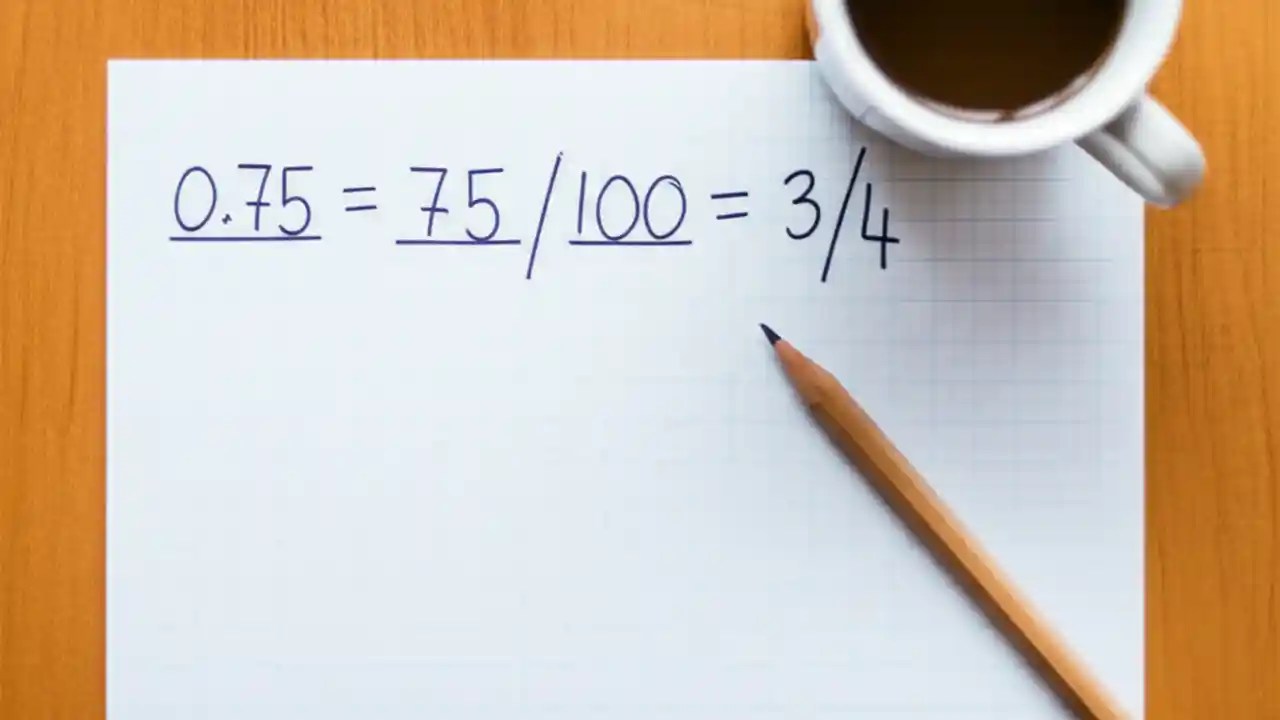 0.75 = 75/100 = 3/4